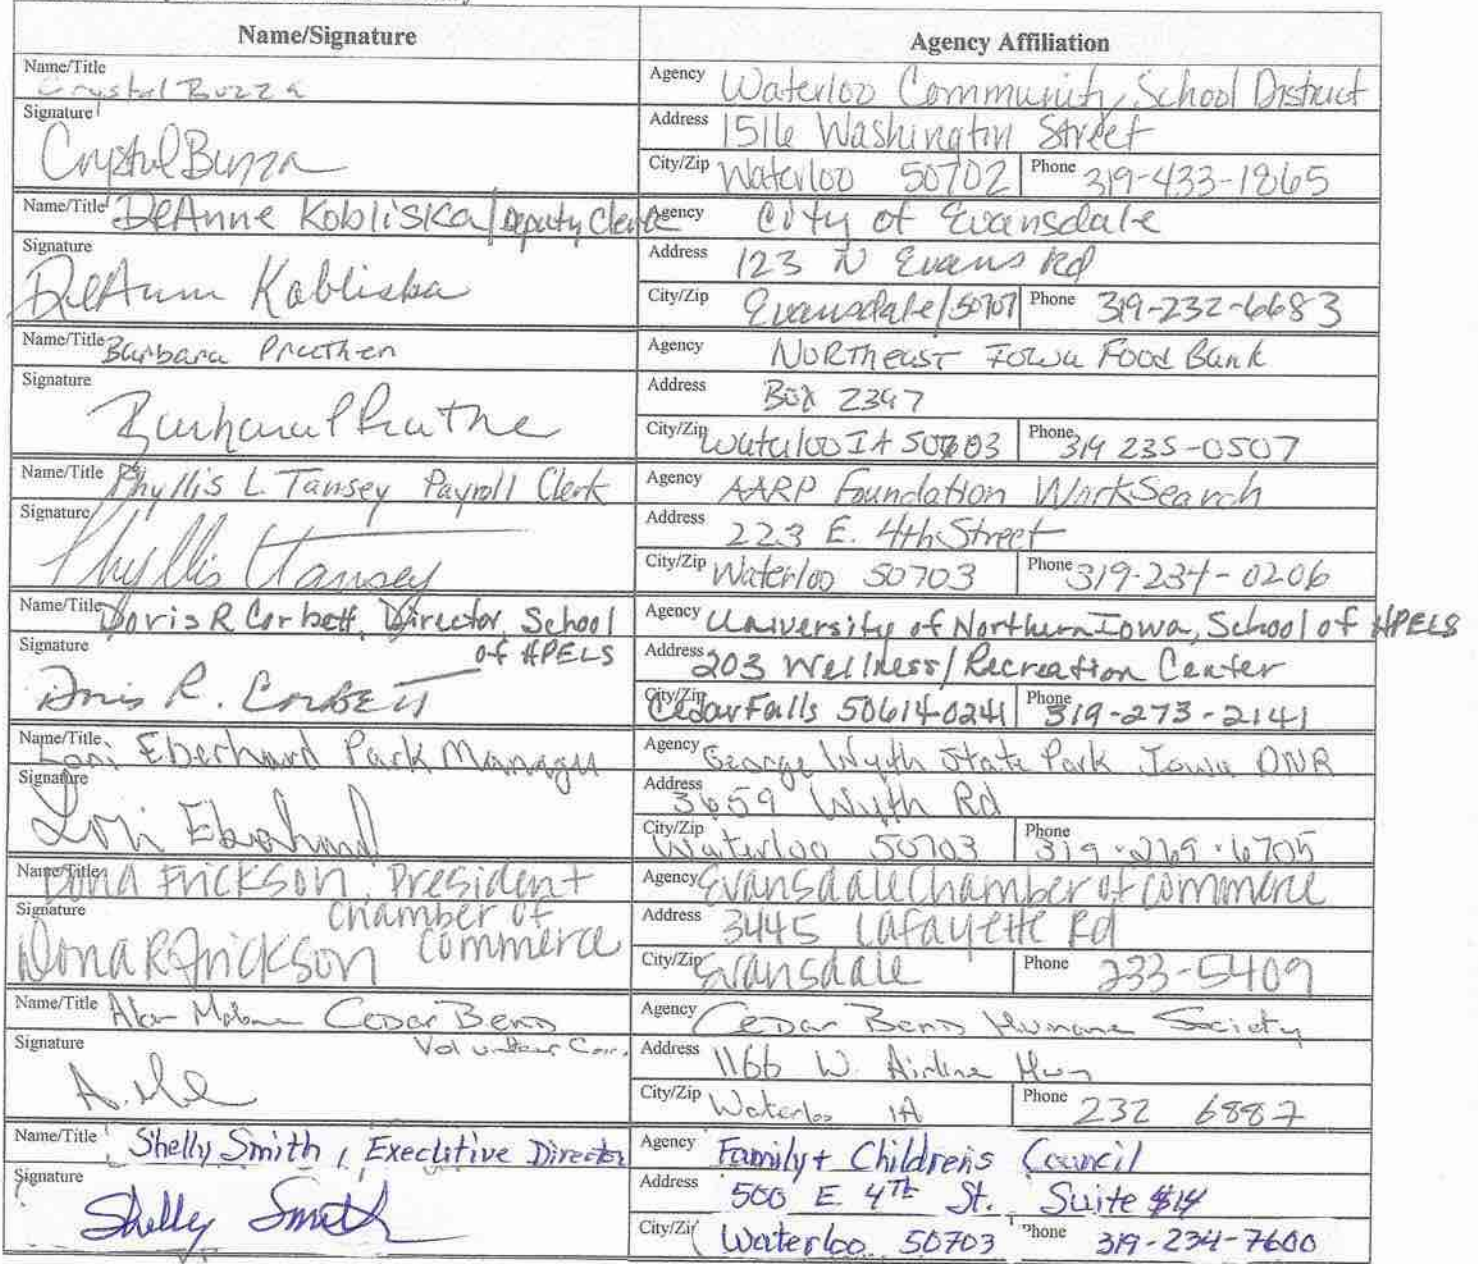 Name/Signature
Agency Affiliation
Name/Title Crystal Buzza
Agency Waterloo Community School District
Signature Crystal Buzza
Address 1516 Washington Street
City/Zip Waterloo 50702 Phone 319-433-1865
Name/Title DeAnne Kobliska/Deputy Clerk
Agency City of Evansdale
Signature DeAnne Kobliska
Address 123 N Evans Rd
City/Zip Evansdale/50707 Phone 319-232-6683
Name/Title Barbara Prather
Agency Northeast Iowa Food Bank
Signature Barbara Prather
Address Box 2397
City/Zip Waterloo IA 50703 Phone 319 235-0507
Name/Title Phyllis L. Tansey Payroll Clerk
Agency AARP Foundation WorkSearch
Signature Phyllis L Tansey
Address 223 E. 4th Street
City/Zip Waterloo 50703 Phone 319-234-0206
Name/Title Doris R Corbett, Director, School
of HPELS
Agency University of Northern Iowa, School of HPELS
Signature Doris R. Corbett
Address 203 Wellness/Recreation Center
City/Zip Cedar Falls 50614-0241 Phone 319-273-2141
Name/Title Lori Eberhard Park Manager
Agency George Wyth State Park Iowa DNR
Signature Lori Eberhard
Address 3659 Wyth Rd
City/Zip Waterloo 50703 Phone 319-269-6705
Name/Title Dona Frickson, President
Chamber of
Commerce
Agency Evansdale Chamber of Commerce
Signature Dona R Frickson
Address 3445 Lafayette Rd
City/Zip Evansdale Phone 233-5409
Name/Title Cedar Bend
Volunteer Coor.
Agency Cedar Bend Humane Society
Signature
Address 1166 W. Airline Hwy
City/Zip Waterloo IA Phone 232 6887
Name/Title Shelly Smith, Executive Director
Agency Family + Children's Council
Signature Shelly Smith
Address 500 E 4TH St. Suite #14
City/Zip Waterloo 50703 Phone 319-234-7600